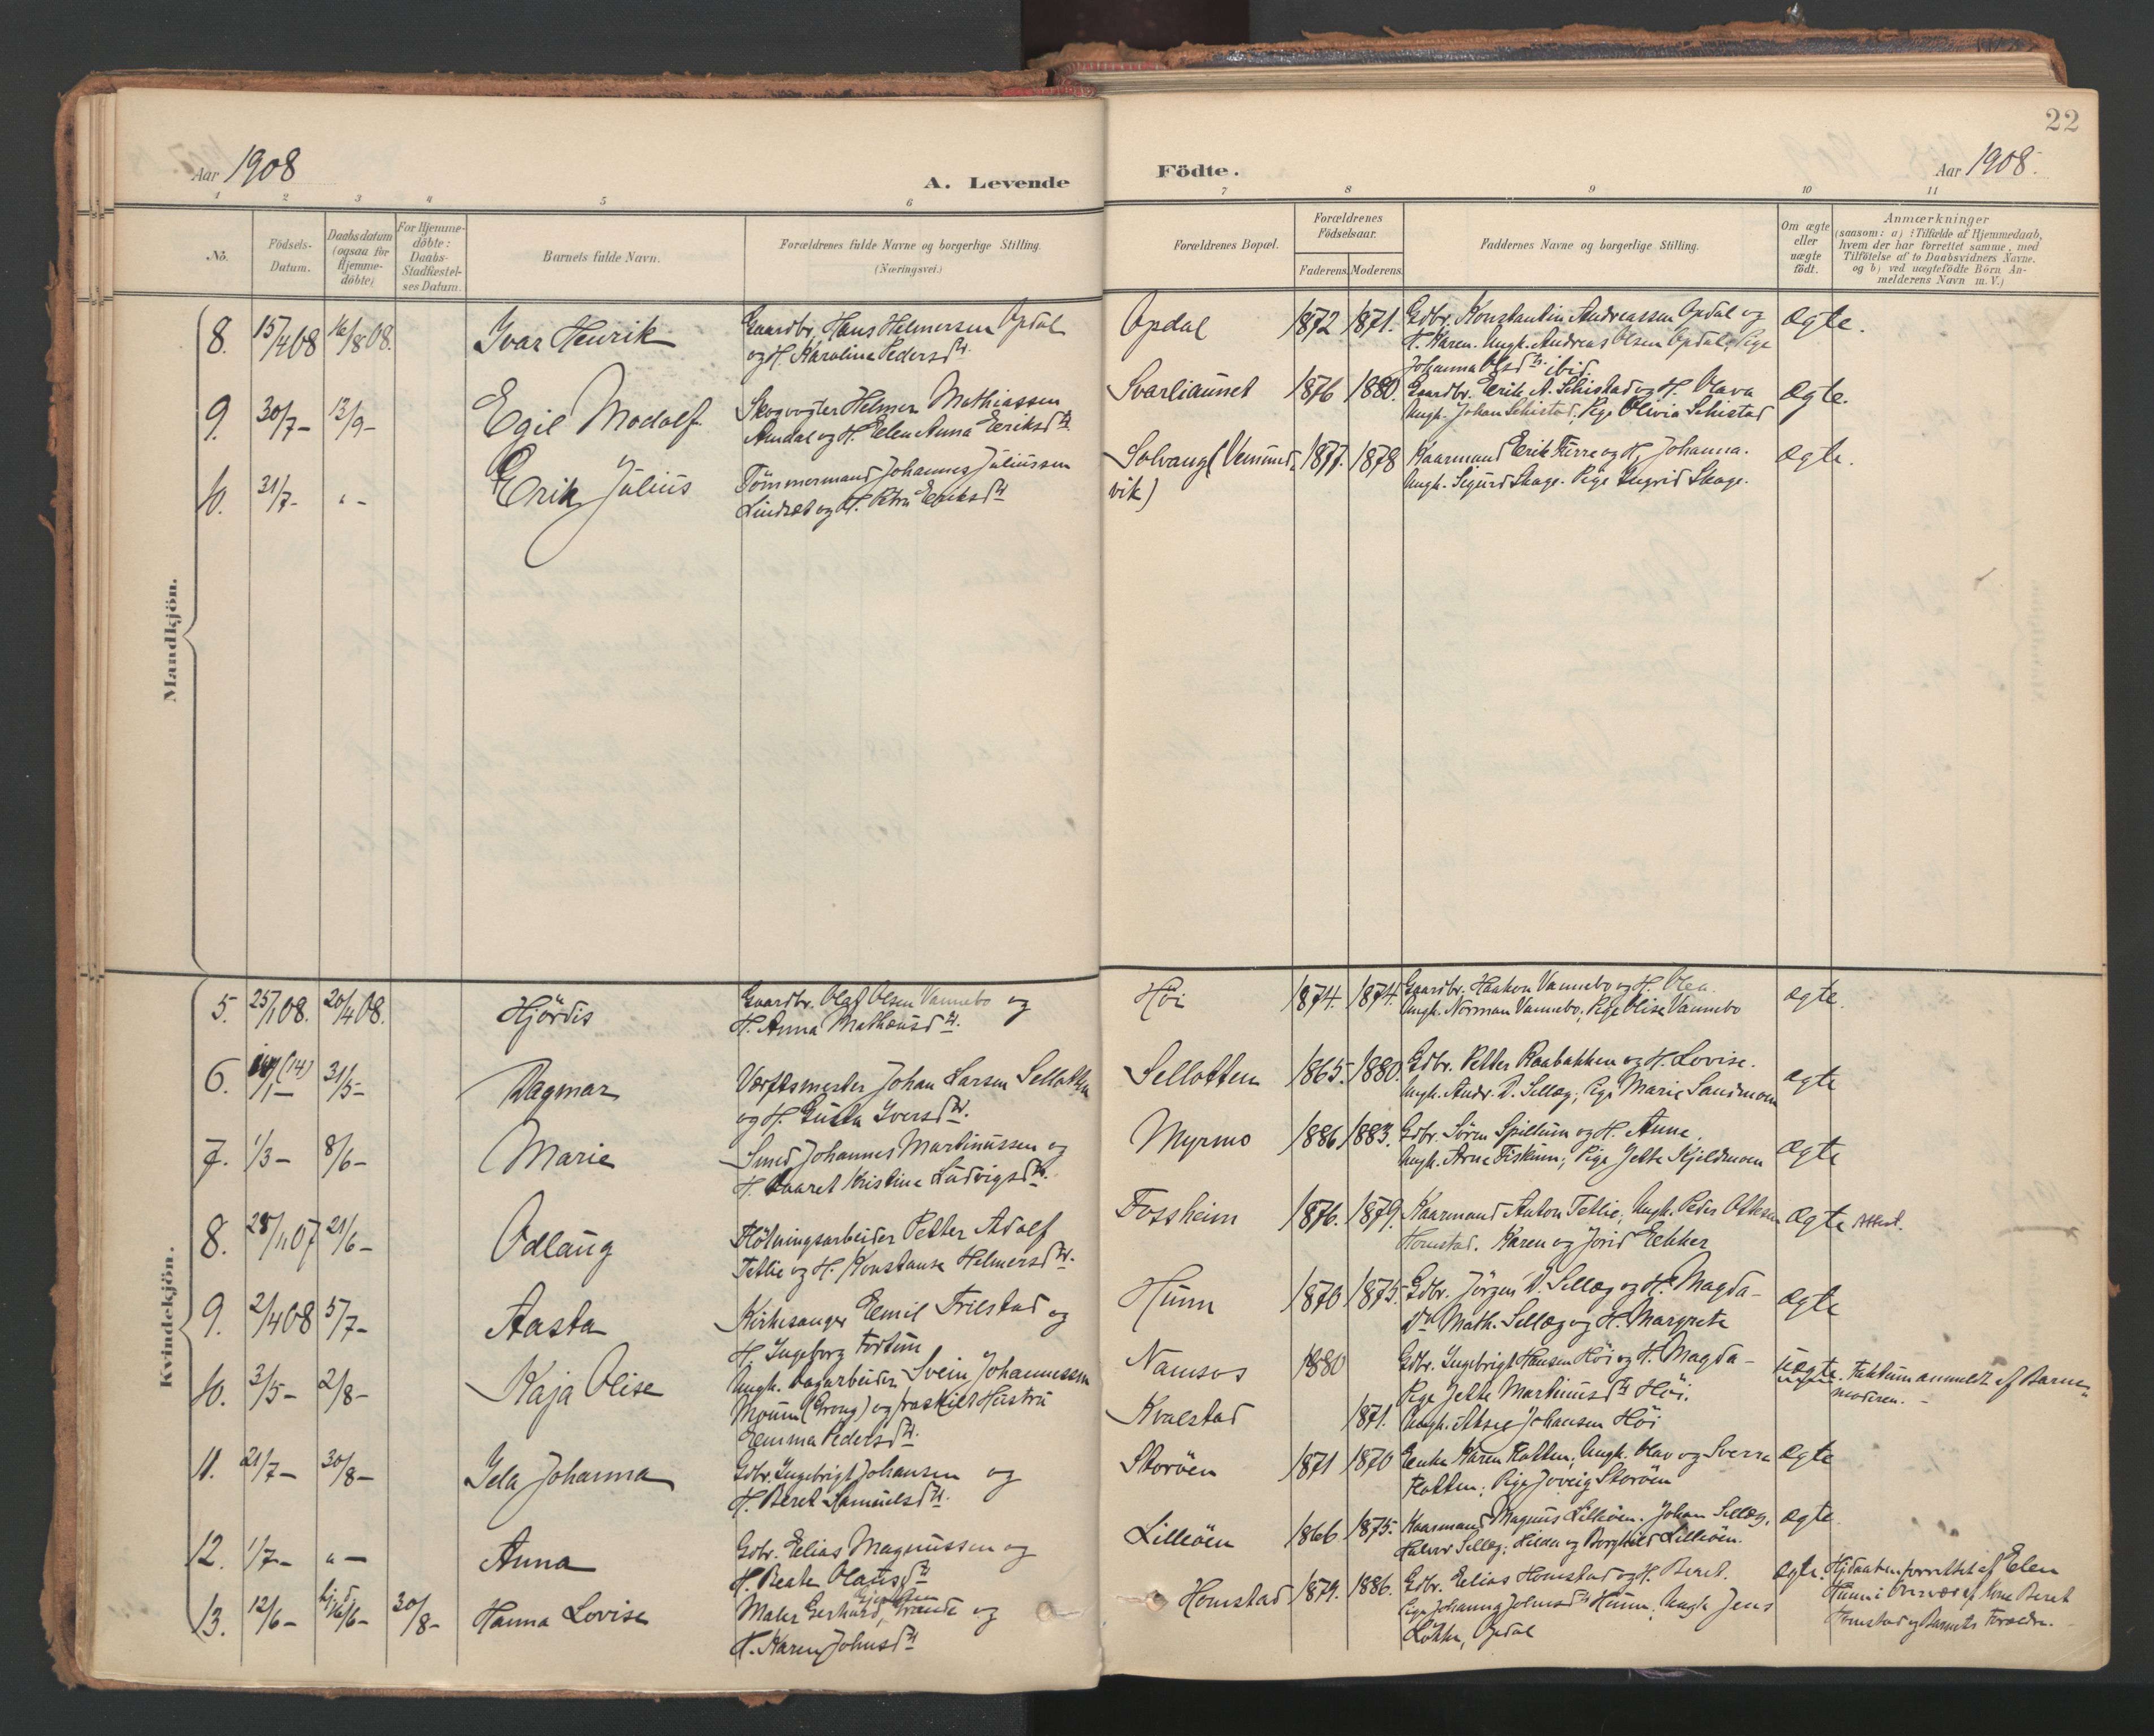 22
Aar 1908
A. Levende
Födte.
Aar 1908.
1 2 3 4 5 6 7 8 9 10 11
No.
Födsels-
Datum.
Daabsdatum
(ogsaa for
Hjemme-
döbte)
For Hjemme-
döbte:
Daabs-
Stadfæstel-
ses Datum.
Barnets fulde Navn.
Forældrenes fulde Navne og borgerlige Stilling.
(Næringsvei.)
Forældrenes Bopæl.
Forældrenes
Födselsaar.
Faderens. Moderens.
Faddernes Navne og borgerlige Stilling.
Om ægte
eller
uægte
födt.
Anmærkninger
(saasom: a) i Tilfælde af Hjemmedaab,
hvem der har forrettet samme, med
Tilföielse af to Daabsvidners Navne.
og b) ved uægtefödte Börn An-
melderens Navn m. V.)
Mandkjön.
8. 15/4 08 16/8 08. Ivar Henrik
Gaardbr. Hans Helmersen Opdal
og H. Karoline Pedersdtr.
Opdal 1872 1871.
Gdbr. Konstantin Andreassen Opdal og
H. Karen. Ungk. Andreas Olsen Opdal, Pige
Johanna Olsdtr. ibid.
ægte.
9. 30/7 - 13/9 - Egil Modolf
Skogvogter Helmer Mathiassen
Amdal og H. Elen Anna Eriksdtr.
Svarliaunet 1876 1880.
Gaardbr. Erik A. Schistad og H. Olava
Ungk. Johan Schistad, Pige Olivia Schistad
ægte.
10. 31/7 - " - Erik Julius
Tömmermand Johannes Juliussen
Lindset og H. Petra Eriksdtr
Solvang (Vemund-
vik)
1877. 1878
Kaarmand Erik Furre og H. Johanna.
Ungk. Sigurd Skage. Pige Ingrid Skage.
ægte.
Kvindekjön.
5. 25/1 08. 20/4 08. Hjördis
Gaardbr. Olaf Olsen Vannebo og
H. Anna Mathæusdtr.
Höi 1874. 1874
Gaardbr. Haakon Vannebo og H. Olea.
Ungk. Norman Vannebo, Pige Olise Vannebo
ægte.
6. (14) /1 - 31/5 - Dagmar
Værftsmester Johan Larsen Sellotten
og H. Gusta Iversdtr.
Sellotten 1865. 1880.
Gdbr. Petter Raabakken og H. Lovise.
Ungk. Andr. D. Sellæg; Pige Marie Sandmoen
ægte
7. 1/3 - 8/6 - Marie
Smed Johannes Martinussen og
H. Kaaret Kristine Ludvigsdtr.
Myrmo 1886 1883.
Gdbr. Sören Spillum og H. Anne,
Ungk. Arne Fiskum; Pige Jette Kjeldmoen
ægte
8. 28/11 07 21/6 - Odlaug
Flötningsarbeider Petter Adolf
Tetlie og H. Konstanse Helmersdtr.
Fossheim 1876. 1879.
Kaarmand Anton Tetlie, Ungk. Peder Ottesen
Homstad. Karen og Jorid Eekker
ægte Attest.
9. 2/4 08 5/7 - Aasta
Kirkesanger Emil Frilstad og
H. Ingeborg Fortun
Hunn 1870 1875.
Gdbr. Jörgen D. Sellæg og H. Magda -
Do Math. Sellæg og H. Margrete
ægte
10. 3/5 - 2/8 - Kaja Olise
Ungk. Dagarbeider Svein Johannessen
Moum (Grong) og fraskilt Hustru
Emma Pedersdtr.
Namsos 1880
Kvalstad 1871.
Gdbr. Ingebrigt Hansen Höi og H. Magda -
Pige Jette Martinusdtr Höi.
Ungk. Aksel Johansen Höi
uægte. Faktum anmeldt af Barne-
moderen. -
11. 21/7 - 30/8 - Jela Johanna
Gdbr. Ingebrigt Johansen og
H. Beret Samuelsdtr.
Storöen 1871 1870
Enke Karen Flotten; Ungk. Olav og Sverre
Flotten; Pige Joveig Storöen
ægte
12. 1/7 - " - Anna
Gdbr. Elias Magnussen og
H. Beate Olausdtr
Lilleöen 1866 1875.
Kaarmand Magnus Lilleöen. Johan Sellæg.
Halvor Sellæg; Hilda og Borghild Lilleöen.
ægte
13. 12/6 - hjd. /6 - 30/8 - Hanna Lovise
Maler Gerhard Grande og
H. Karen Johnsdtr
Homstad 1879. 1886.
Gdbr. Elias Homstad og H. Beret.
Pige Johanna Johnsdtr Hunn; Ungk. Jens
Lökke, Opdal
ægte. Hjdaaben forrettet af Elen
Hunn i Overvær af Kone Beret
Homstad og Barnets Forældre.